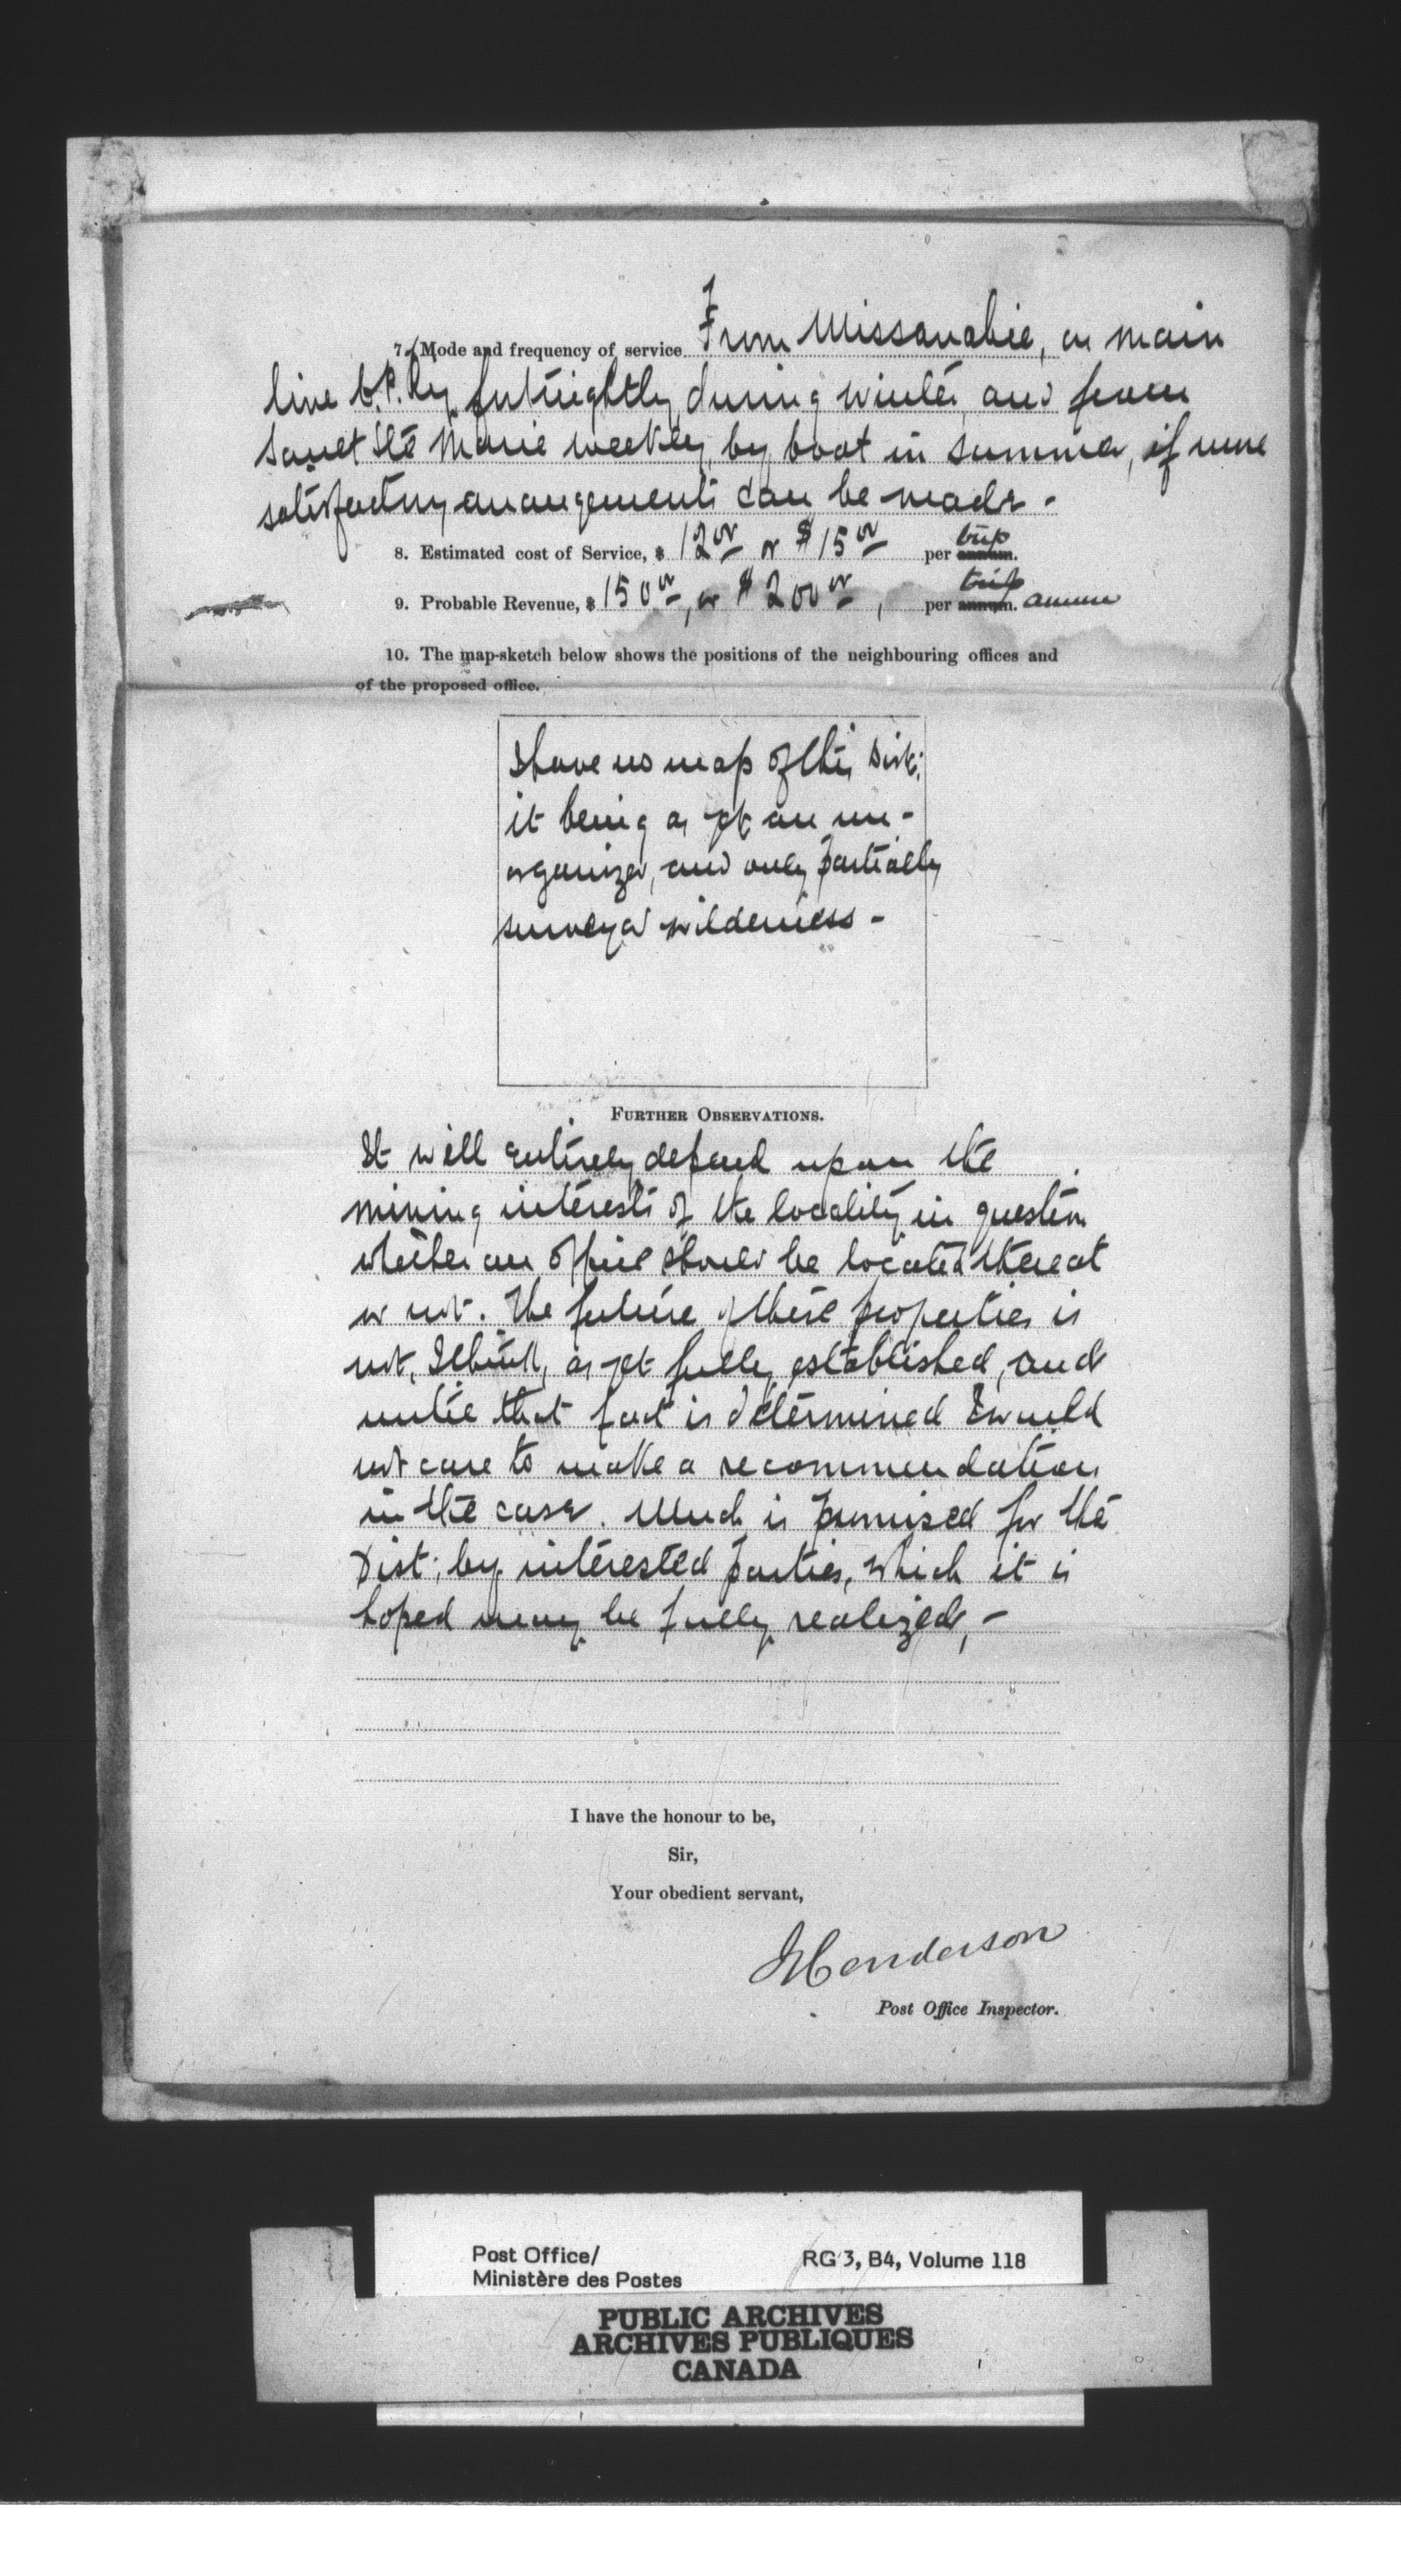 7. Mode and frequency of service From Missanabie, on main
line C.P. Ry. fortnightly during winter, and from
Sault Ste Marie weekly, by boat in summer, if more
satisfactory arrangements can be made -
8. Estimated cost of Service, $ 12 00 or $15 00 per annum. trip
9. Probable Revenue, $ 150 00, or $200 00, per annum. trip annum
10. The map-sketch below shows the positions of the neighbouring offices and
of the proposed office.
I have no map of this Dist:
it being as yet an un-
organized, and only partially
surveyed wilderness -
FURTHER OBSERVATIONS.
It will entirely depend upon the
mining interests of the locality in question
whether an office should be located thereat
or not. The future of these properties is
not, I think, as yet fully established, and
until that fact is determined I would
not care to make a recommendation
in the case. Much is promised for the
Dist: by interested parties, which it is
hoped may be fully realized, -
I have the honour to be,
Sir,
Your obedient servant,
J Henderson
Post Office Inspector.
Post Office/
Ministère des Postes
RG 3, B4, Volume 118
PUBLIC ARCHIVES
ARCHIVES PUBLIQUES
CANADA